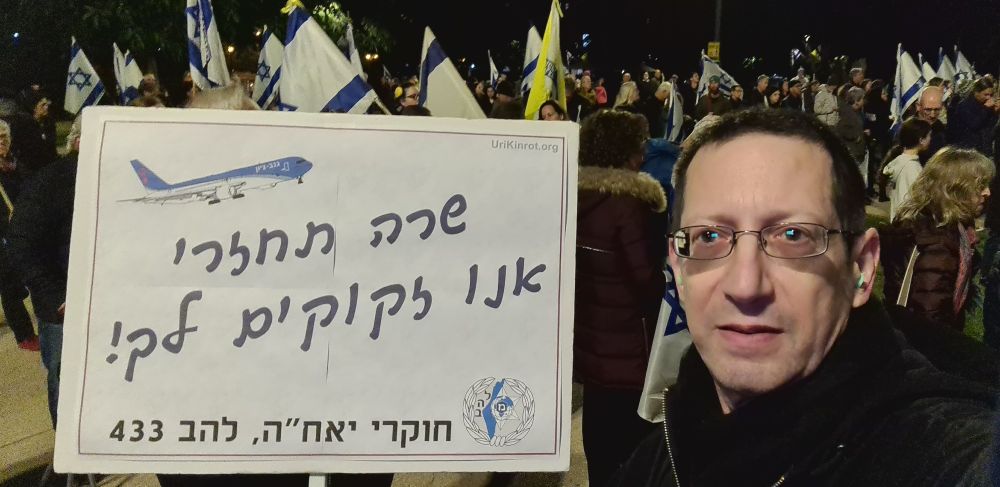 UriKinrot.org
שרה תחזרי
אנו זקוקים לך!
חוקרי יאח"ה, להב 433